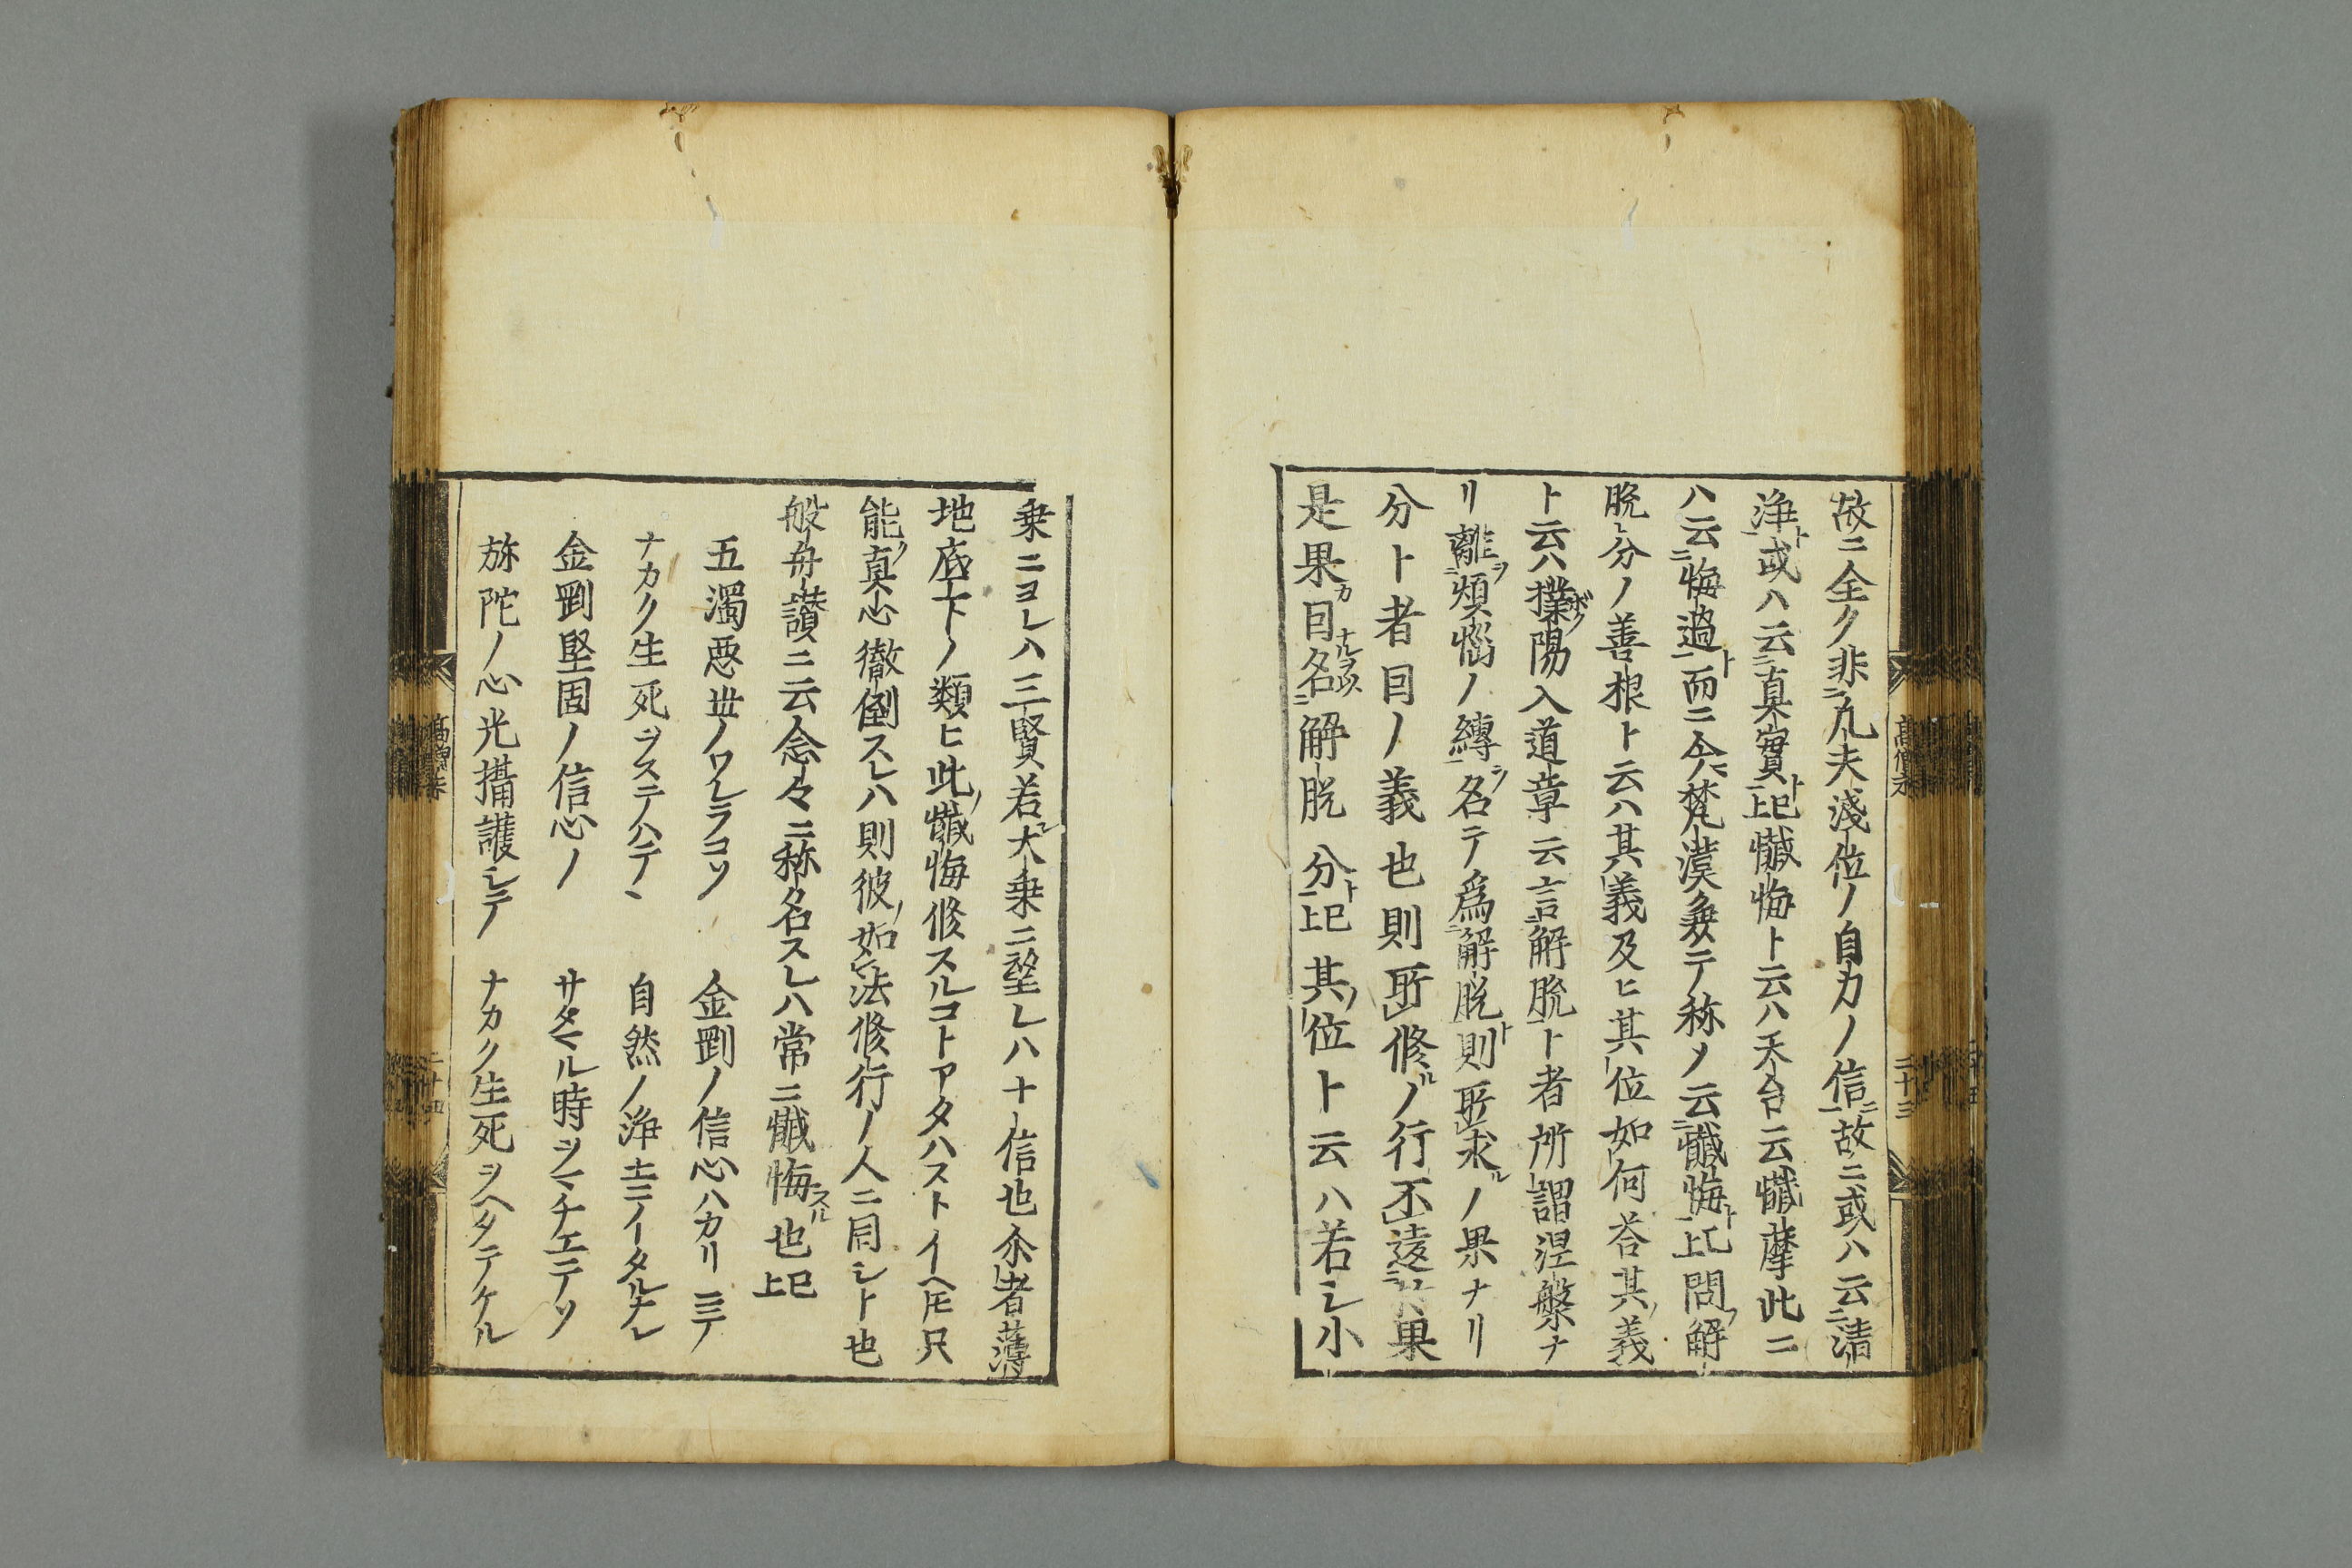 故ニ全ク非凡夫淺位ノ自力ノ信ニ故ニ或ハ云清
淨ト或ハ云真實ト已上懺悔ト云ハ天台云懺摩此ニ
ハ云悔過ト而ニ今梵漢兼テ称メ云懺悔ト已上問解
脱分ノ善根ト云ハ其義及ヒ其位如何荅其ノ義
ト云ハ撲陽入道章云言解脱ト者所謂涅槃ナ
リ離煩惱ノ縛ヲ名テ為解脱ト則所求ルノ果ナリ
分ト者因ノ義也則所修ルノ行不遠果
是果カ因ナルヲ以名解脱分ト已上其ノ位ト云ハ若シ小
乗ニヨレハ三賢若大乗ニ望レハ十信也尒者薄
地底下ノ類ヒ此ノ懺悔修スルコトアタハストイヘ𪜈只
能ノ真心徹倒スレハ則彼ノ如法修行ノ人ニ同シト也
般舟讃ニ云念々ニ称名スレハ常ニ懺悔スル也已上
五濁惡丗ノワレラコソ 金剛ノ信心ハカリニテ
ナカク生死ヲステハテヽ 自然ノ淨土ニイタルナレ
金剛堅固ノ信心ノ サタマル時ヲマチエテソ
弥陀ノ心光攝護シテ ナカク生死ヲヘタテケル
二十三